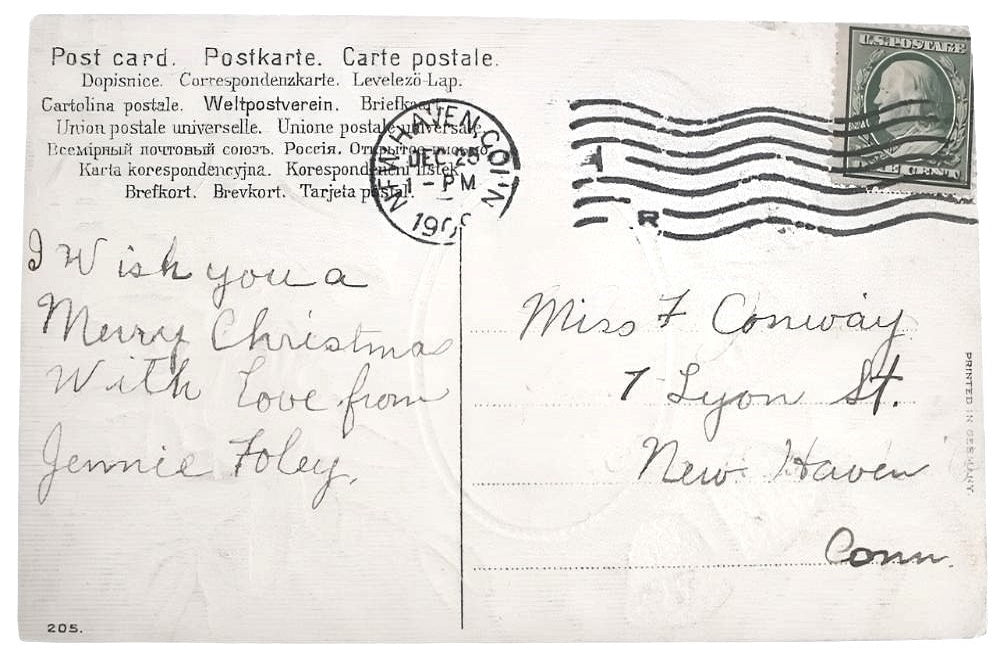 Post card. Postkarte. Carte postale.
Dopisnice. Correspondenzkarte. Levelező-Lap.
Cartolina postale. Weltpostverein. Briefkaart.
Union postale universelle. Unione postale universale.
Всемірный почтовый союзъ. Россія. Открытое
Karta korespondencyjna. Korespondenčni listek.
Brefkort. Brevkort. Tarjeta postal.
NEW HAVEN, CONN.
DEC 25
1 - PM
U.S. POSTAGE
ONE CENT
1
R
I Wish you a
Merry Christmas
With Love from
Jennie Foley.
Miss F Conway
7 Lyon St.
New Haven
Conn.
PRINTED IN GERMANY.
205.